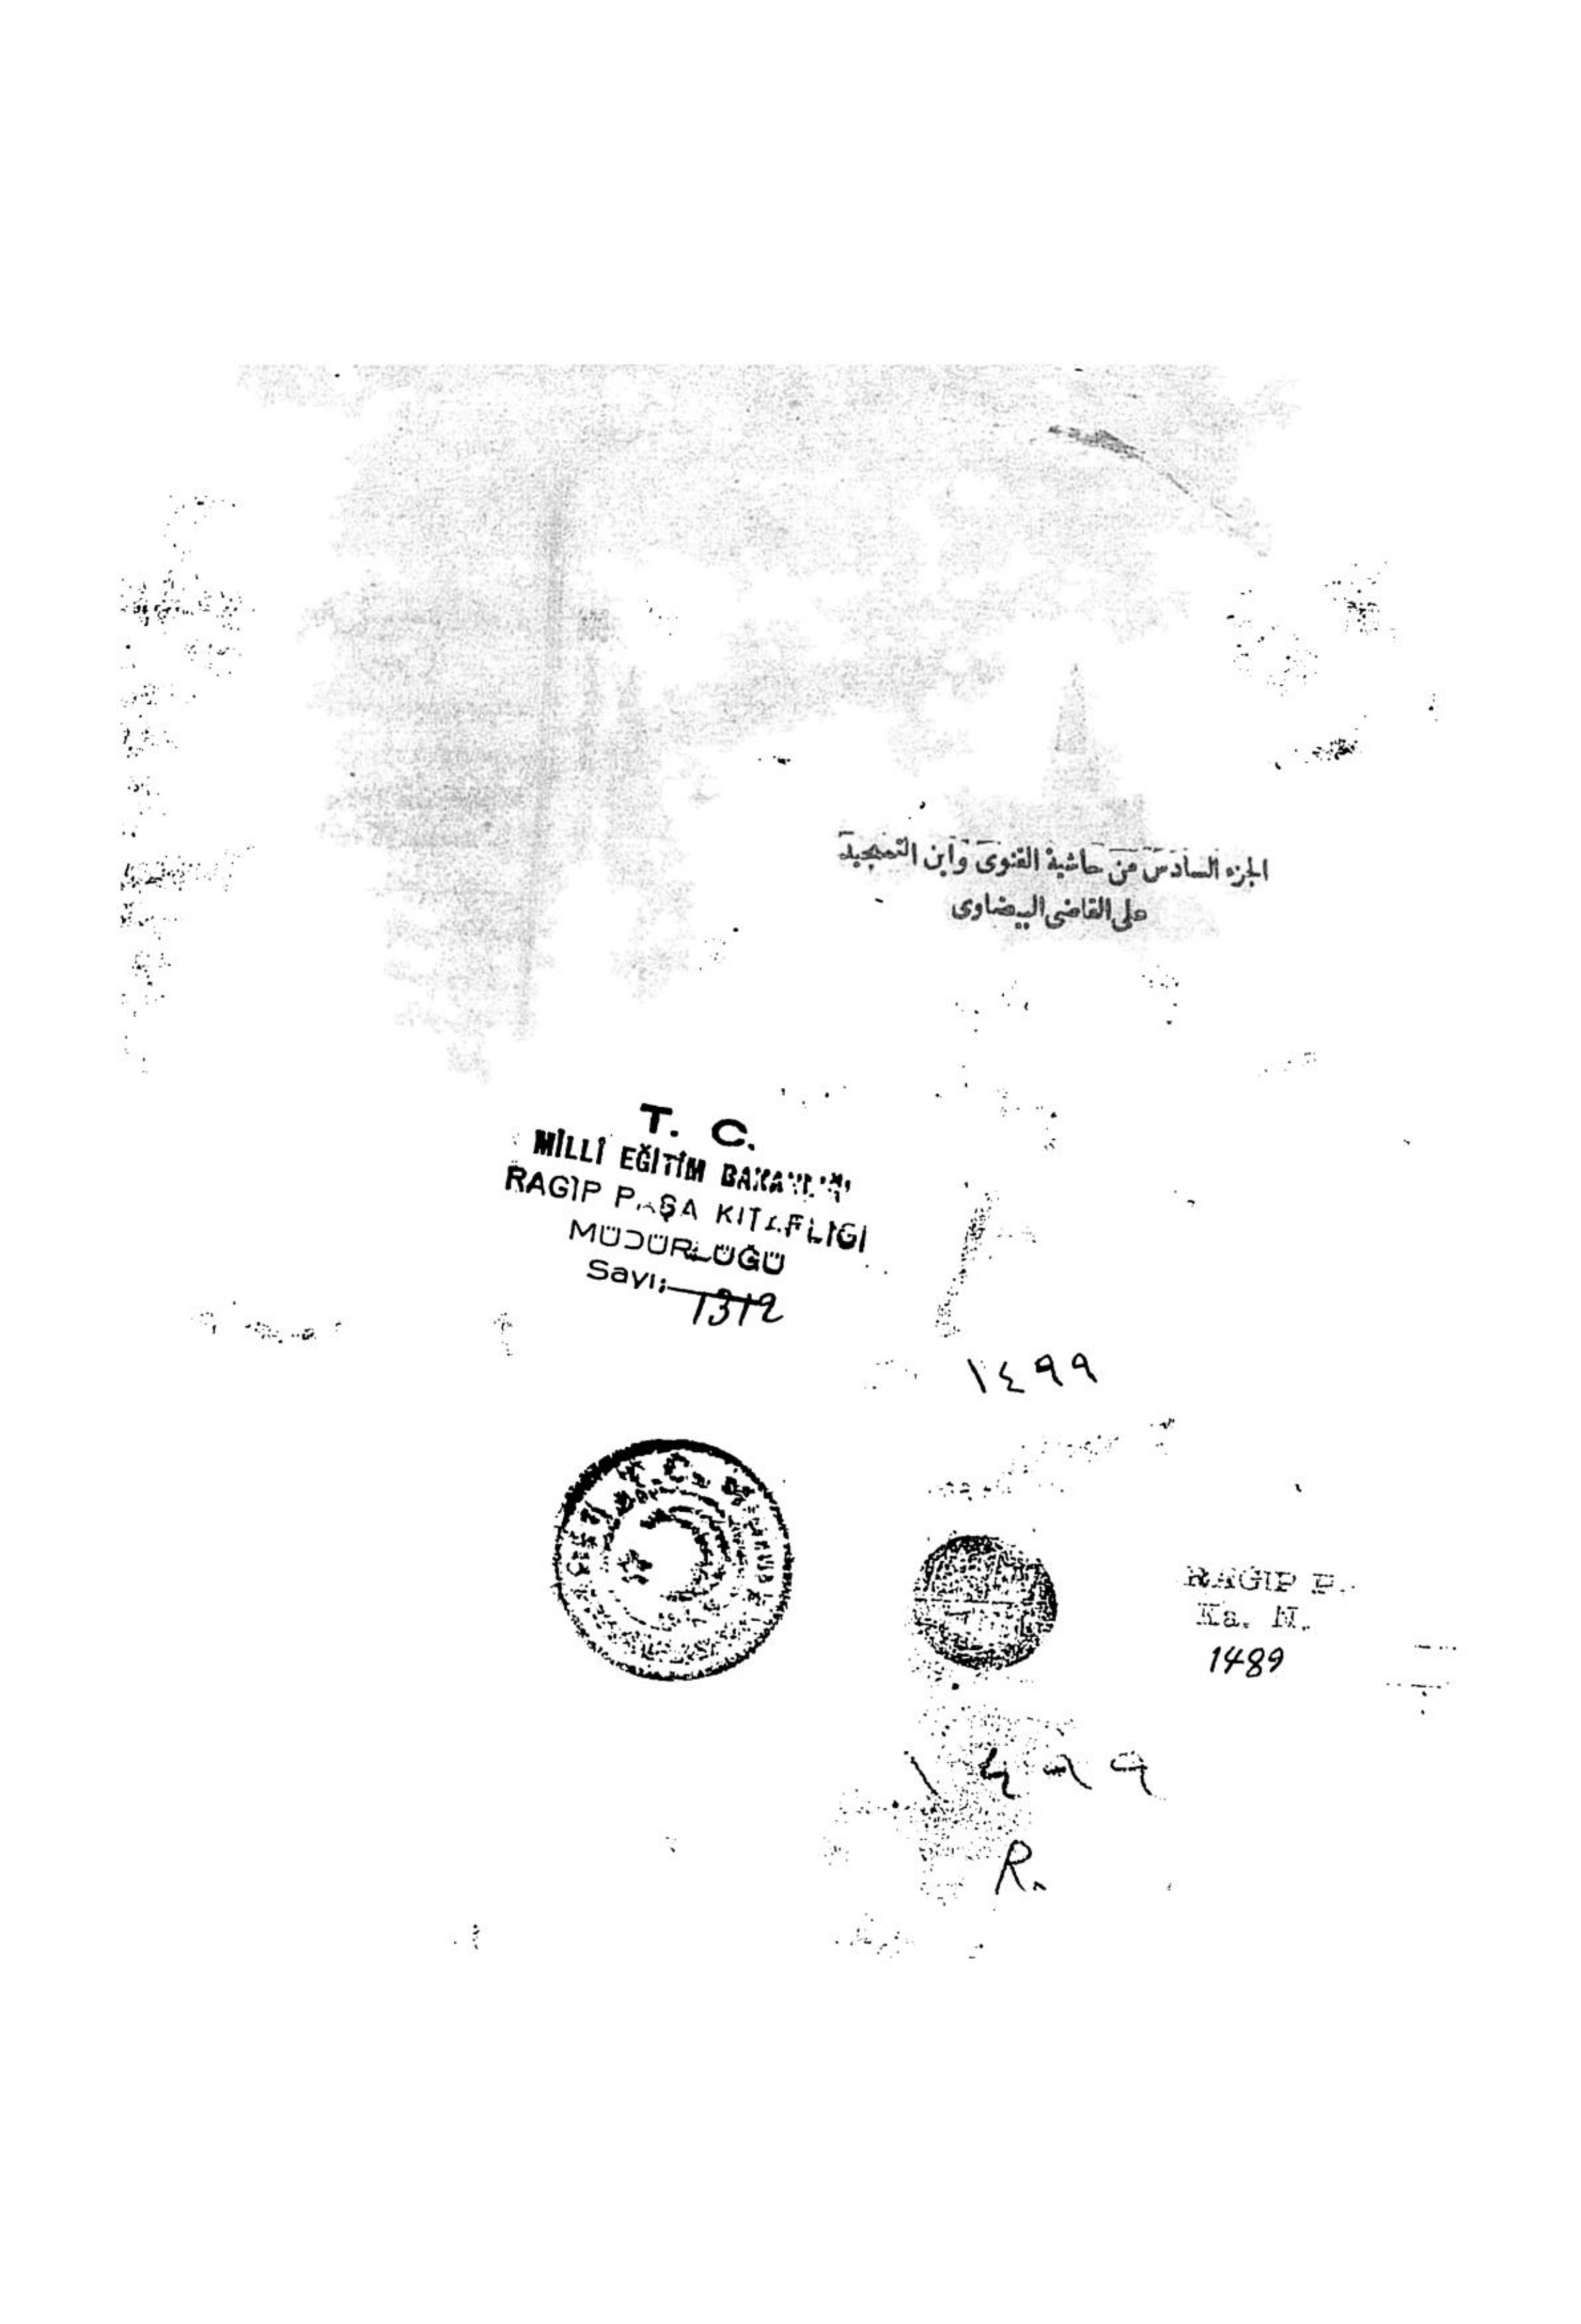 الجزء السادس من حاشية القنوى وابن التمجيد
على القاضى البيضاوى
T. C.
MİLLÎ EĞİTİM BAKANLIĞI
RAGIP PAŞA KİTAPLIĞI
MÜDÜRLÜĞÜ
Sayı: 1312
١٤٩٩
T. C.
RAGIP P.
Ka. N.
1489
١٤٩٩
R.